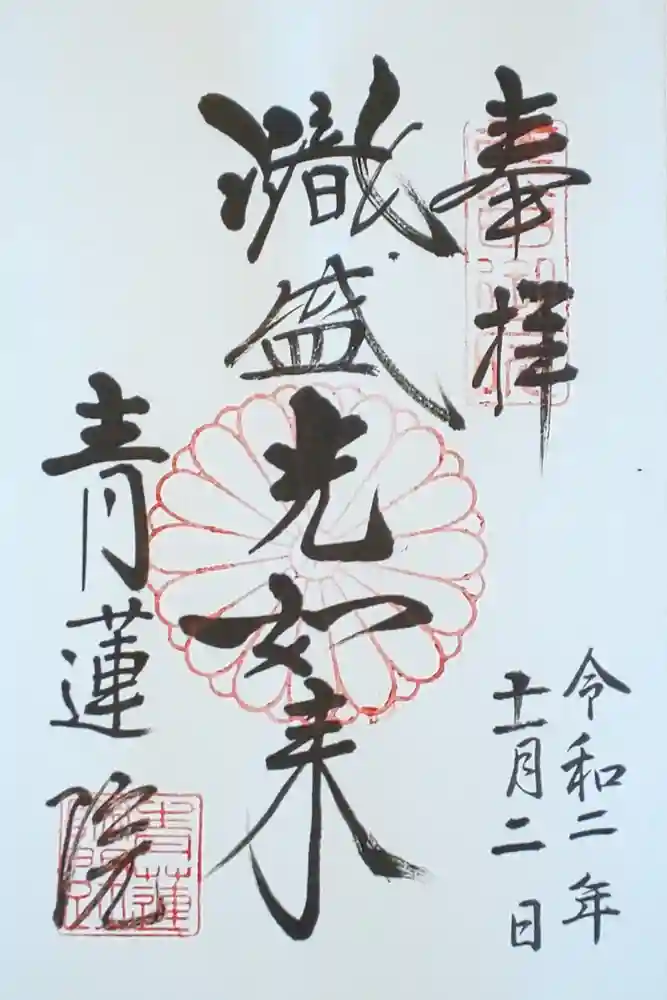 奉拝
令和二年
十一月二日
熾盛光如来
青蓮院
青蓮